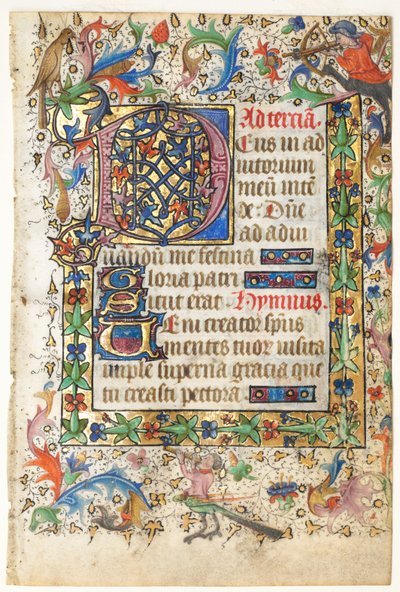 Ad terciā.
Deus in ad
iutorium
meū intē
de: Dñe
ad adiu
uandū me festina
Gloria patri
Sicut erat. Hymnus.
Veni creator sp̄us
mentes tuoꝝ visita
imple superna gracia que
tu creasti pectora